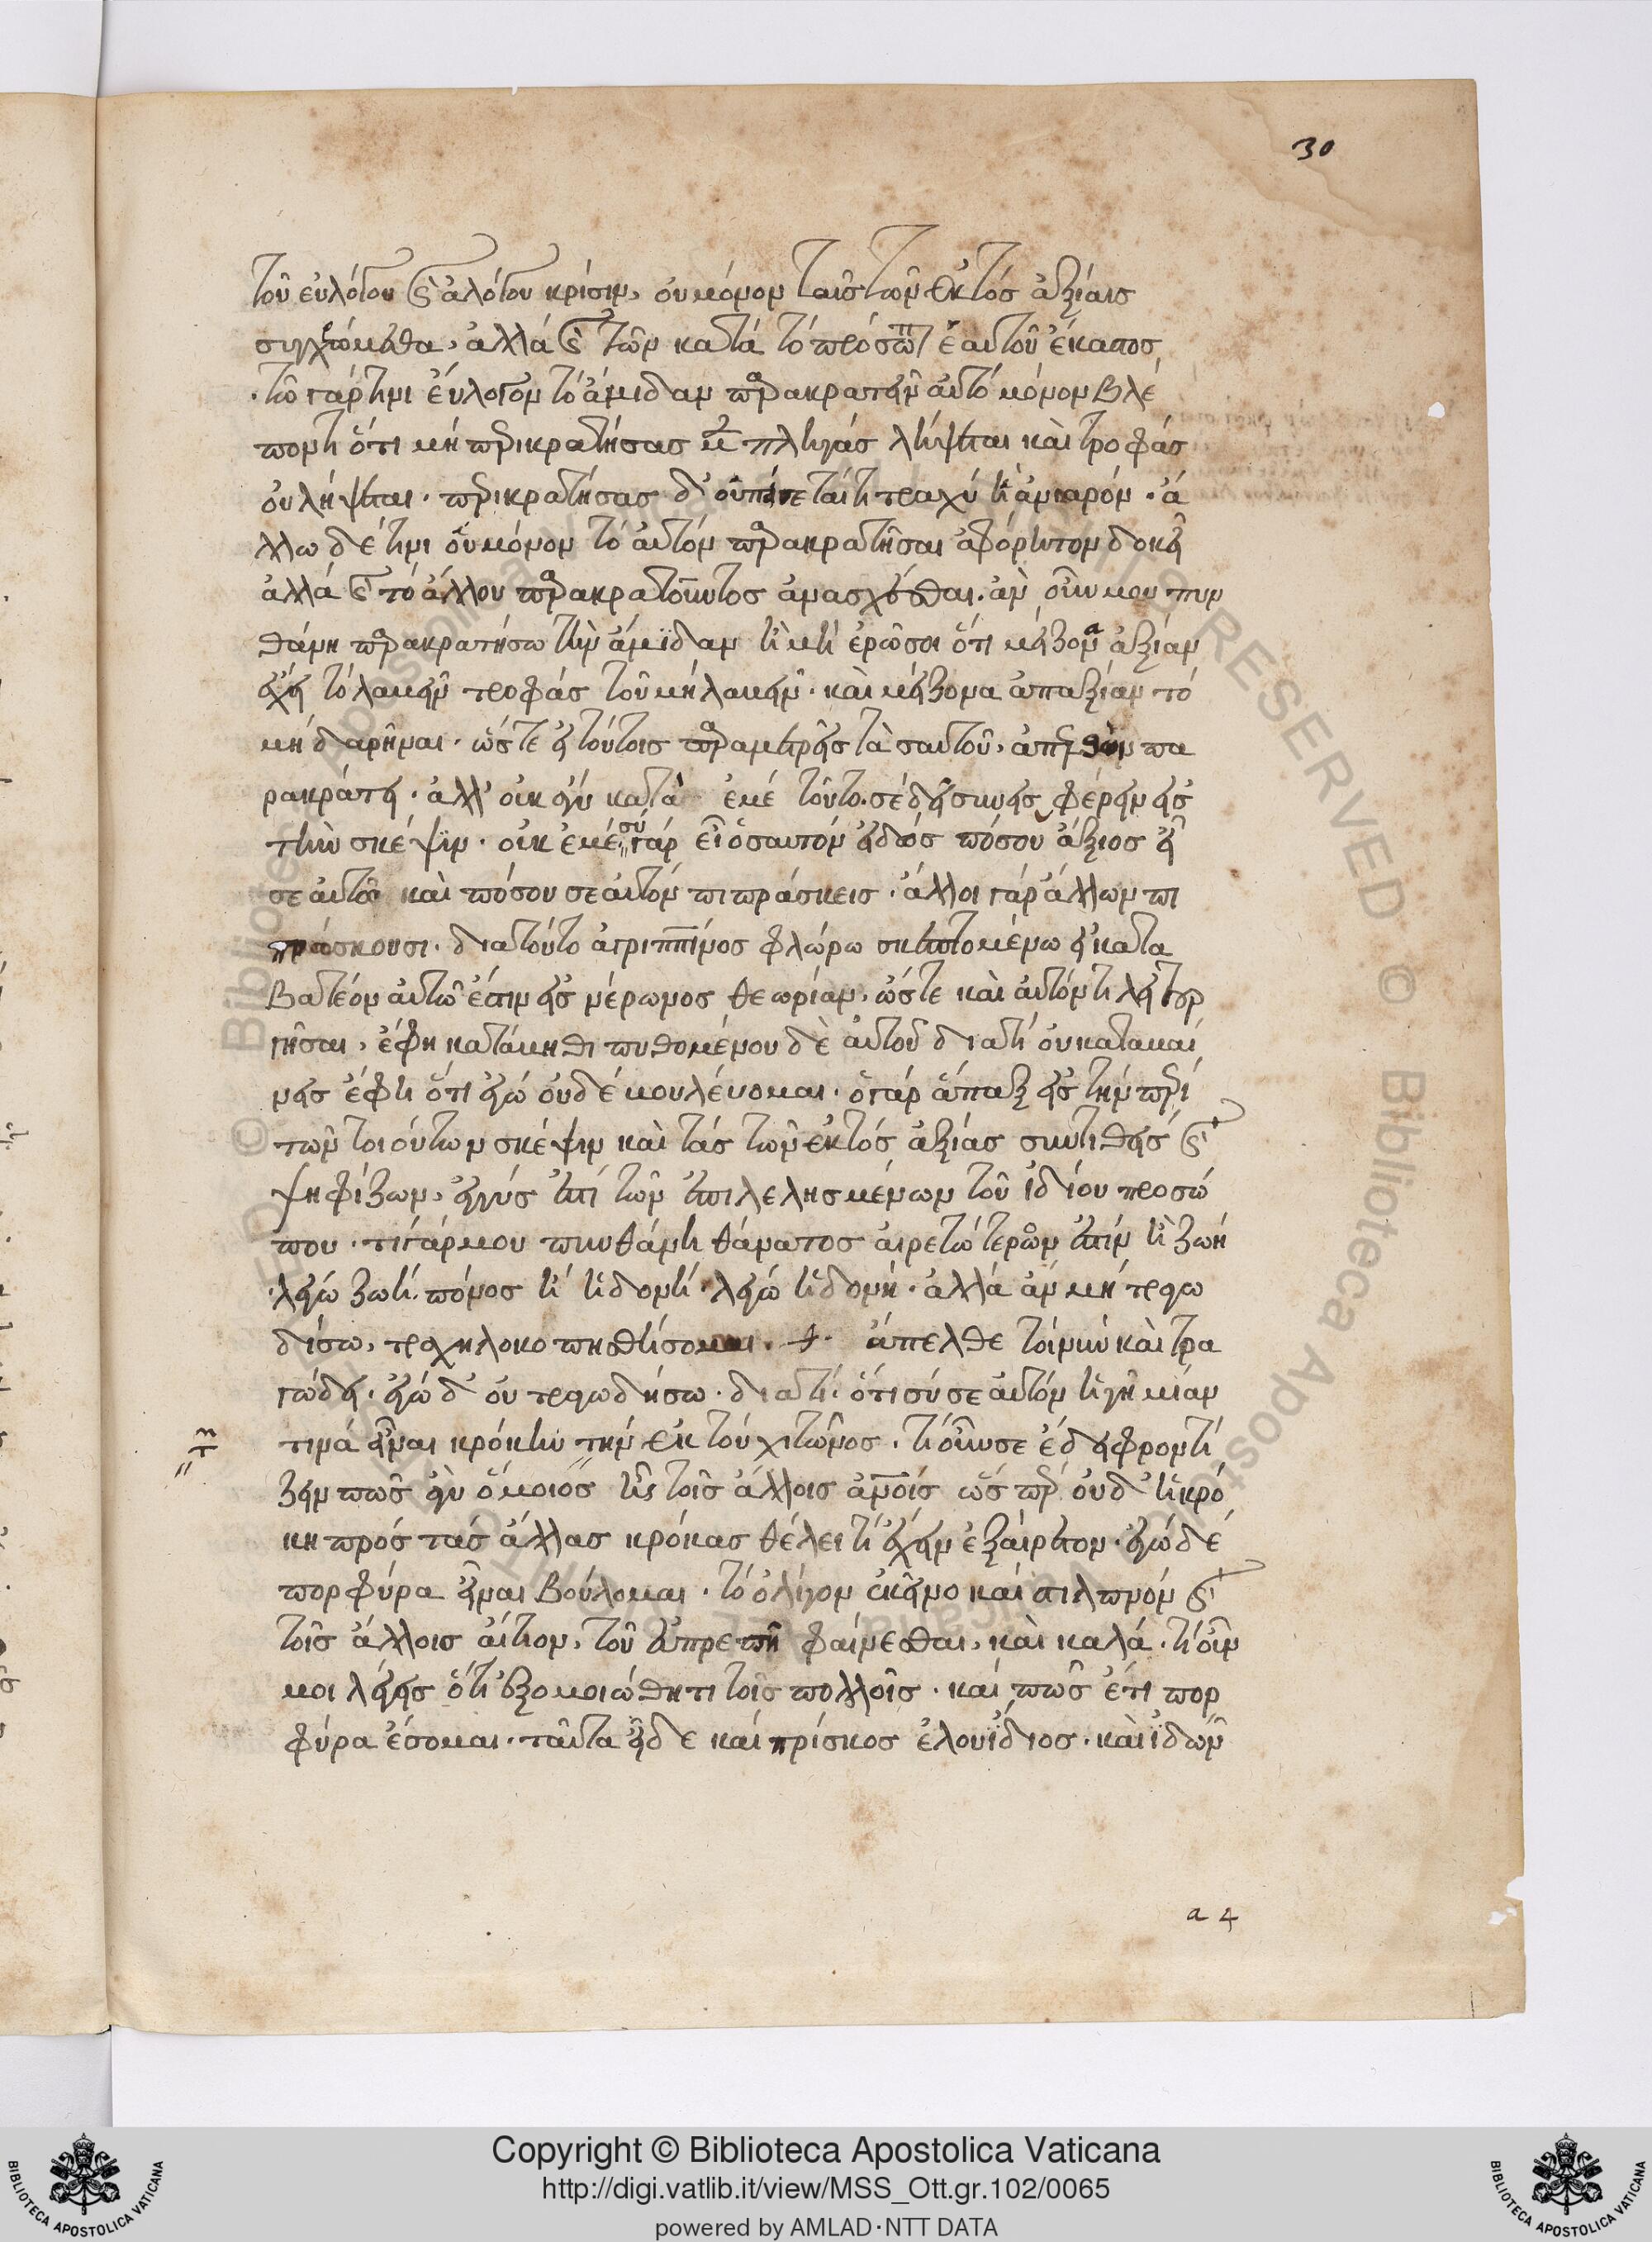 30
τοῦ εὐλόγου καὶ ἀλόγου κρίσιν, οὐ μόνον ταῖς τῶν ἐκτός ἀξίαις
συγχρώμεθα, ἀλλά καὶ τῶν κατά τό πρόσωπον ἑαυτοῦ ἕκαστος
. τῶ γάρ τινι εὔλογον τό ἀμίδαν παρακρατεῖν αὐτό μόνον βλέ
ποντι ὅτι μή παρακρατήσας μὲν πληγάς λήψεται καὶ τροφάς
οὐ λήψεται . παρακρατήσας δ' οὐ πείσεταί τι τραχύ ἢ ἀνιαρόν . ἄ
λλω δέ τινι οὐ μόνον τό αὐτόν παρακρατῆσαι ἀφόρητον δοκεῖ
ἀλλά καὶ τό ἄλλου παρακρατοῦντος ἀνασχέσθαι . ἄν οὖν μου πυν
θάνη παρακρατήσω τὴν ἀμίδαν ἢ μή ἐρῶ σοι ὅτι μείζονα ἀξίαν
ἔχει τό λαβεῖν τροφάς τοῦ μή λαβεῖν . καὶ μείζονα ἀπαξίαν τό
μή δαρῆναι . ὥστε εἰ τούτοις παραμετρεῖς τὰ σαυτοῦ, ἀπελθὼν πα
ρακράτει . ἀλλ' οὐκ ἄν κατὰ ἐμέ τοῦτο . σέ δεῖ συνεισφέρειν εἰς
τὴν σκέψιν . οὐκ ἐμέ σύ γάρ εἶ ὁ σαυτόν εἰδώς πόσου ἄξιος εἶ
σεαυτῶ καὶ πόσου σεαυτόν πιπράσκεις . ἄλλοι γάρ ἄλλων πι
πράσκουσι . διατοῦτο ἀγριππῖνος φλώρω σκεπτομένω εἰ κατα
βατέον αὐτῶ ἐστιν εἰς νέρωνος θεωρίαν, ὥστε καὶ αὐτόν τι λειτουρ
γῆσαι, ἔφη κατάβηθι πυθομένου δὲ αὐτοῦ διατί οὐ καταβαί
νεις ἔφη ὅτι ἐγώ οὐδέ βουλεύομαι . ὁ γάρ ἅπαξ εἰς τήν περί
τῶν τοιούτων σκέψιν καὶ τάς τῶν ἐκτός ἀξίας συντιθείς καὶ
ψηφίζων, ἐγγύς ἐστί τῶν ἐπιλελησμένων τοῦ ἰδίου προσώ
που . τί γάρ μου πυνθάνη θάνατος αἱρετώτερον ἐστίν ἢ ζωή
. λέγω ζωή . πόνος ἢ ἡδονή . λέγω ἡδονή . ἀλλά ἄν μή τραγω
δήσω, τραχηλοκοπηθήσομαι . ἄπελθε τοίνυν καὶ τρα
γώδει . ἐγώ δ' οὐ τραγωδήσω . διατί . ὅτι σύ σεαυτόν ἡγῇ μίαν
τινά εἶναι κρόκην τήν ἐκ τοῦ χιτῶνος . τί οὖν σε ἔδει φροντί
ζειν πῶς ἂν ὅμοιος ᾖς τοῖς ἄλλοις ἀνοις ὥσπερ οὐδ' ἡ κρό
κη πρός τάς ἄλλας κρόκας θέλει τι ἔχειν ἐξαίρετον . ἐγώ δέ
πορφύρα εἶναι βούλομαι . τό ὀλίγον ἐκεῖνο καί στιλπνόν καὶ
τοῖς ἄλλοις αἴτιον, τοῦ εὐπρεπῆ φαίνεσθαι, καὶ καλά . τί οὖν
μοι λέγεις ὅτι ἐξομοιώθητι τοῖς πολλοῖς . καί πῶς ἔτι πορ
φύρα ἔσομαι . ταῦτα εἶδε καί πρίσκος ἐλουΐδιος . καὶ ἰδών
a 4
© Biblioteca Apostolica Vaticana
Copyright © Biblioteca Apostolica Vaticana
http://digi.vatlib.it/view/MSS_Ott.gr.102/0065
powered by AMLAD·NTT DATA
BIBLIOTECA APOSTOLICA VATICANA
BIBLIOTECA APOSTOLICA VATICANA